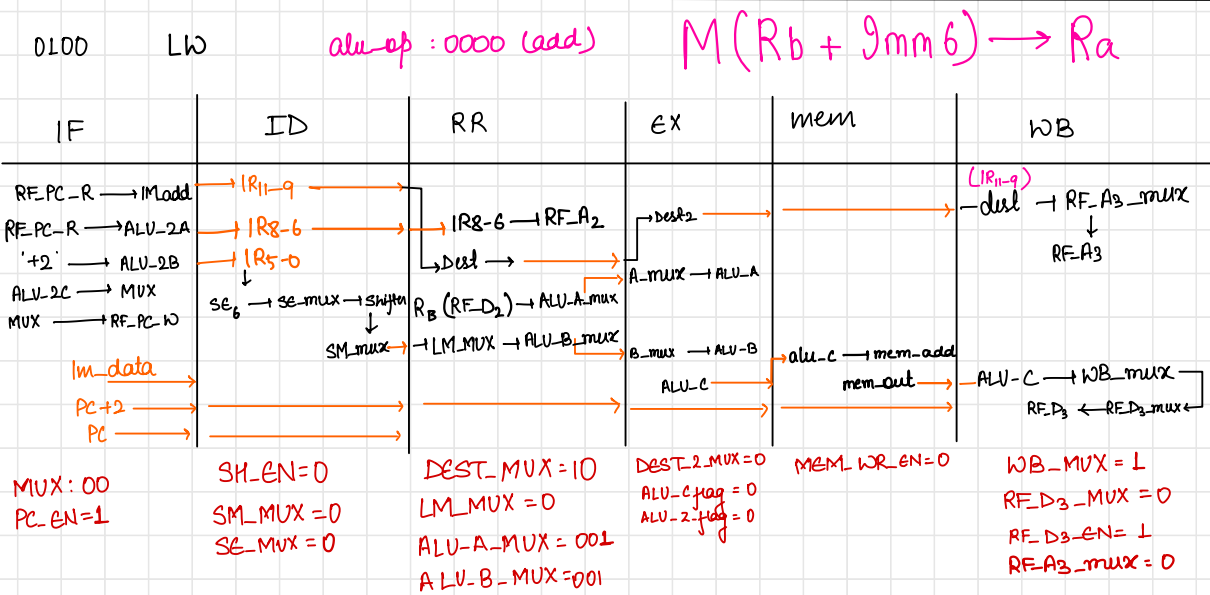 0100 LW alu_op : 0000 (add) M(Rb + Imm6) → Ra
IF ID RR EX mem WB
RF_PC_R → IM add
RF_PC_R → ALU_2A
'+2' → ALU_2B
ALU_2C → MUX
MUX → RF_PC_W
Im_data
PC+2
PC
MUX: 00
PC_EN=1
IR11-9
IR8-6
IR5-0
SE6 → SE_mux → Shifter
SM_mux
SH_EN=0
SM_MUX=0
SE_MUX=0
IR8-6 → RF_A2
Dest →
RB (RF_D2) → ALU_A_mux
→ LM_MUX → ALU_B_mux
DEST_MUX=10
LM_MUX = 0
ALU_A_MUX = 001
ALU_B_MUX=001
Dest2
A_mux → ALU_A
B_mux → ALU-B
ALU_C
DEST_2_MUX=0
ALU_C flag = 0
ALU_Z_flag = 0
alu_c → mem_add
mem_out
MEM_WR_EN=0
(IR11-9)
dest → RF_A3_mux
RF_A3
ALU-C → WB_mux
RF_D3 ← RF_D3_mux
WB_MUX = 1
RF_D3_MUX = 0
RF_D3_EN= 1
RF_A3_mux = 0